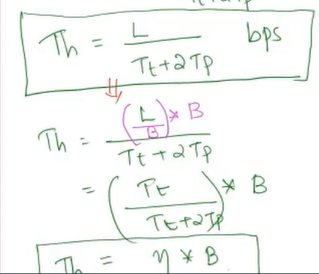 Th = L / Tt + 2Tp bps
⇓
Th = (L / B) * B / Tt + 2Tp
= (Pt / Tt + 2Tp) * B
Th = η * B